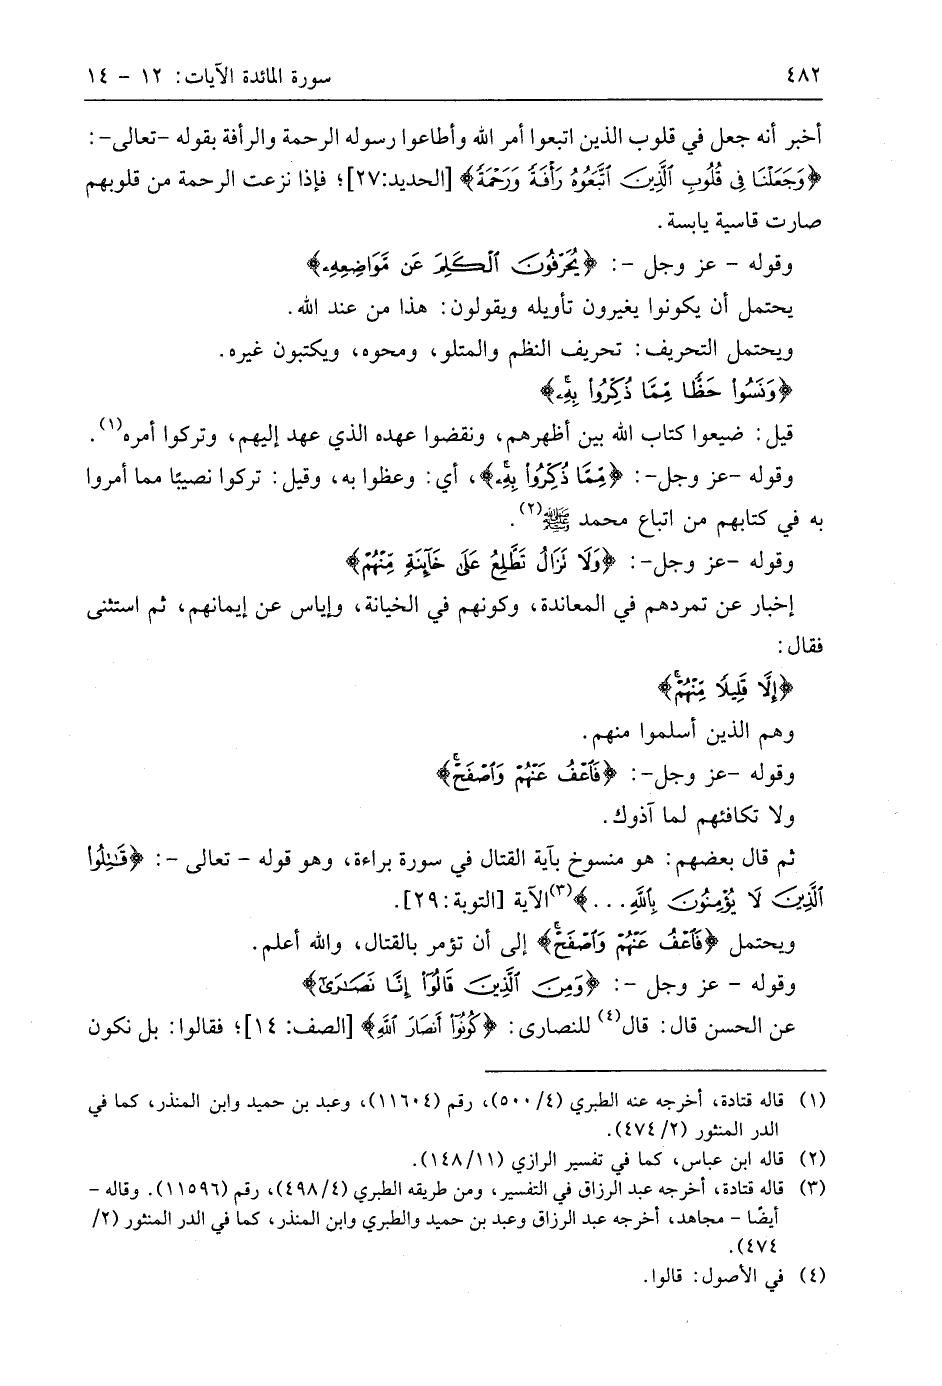 ٤٨٢ سورة المائدة الآيات: ١٢ - ١٤
أخبر أنه جعل في قلوب الذين اتبعوا أمر الله وأطاعوا رسوله الرحمة والرأفة بقوله -تعالى-:
﴿وَجَعَلْنَا فِي قُلُوبِ ٱلَّذِينَ ٱتَّبَعُوهُ رَأْفَةً وَرَحْمَةً﴾ [الحديد:٢٧]؛ فإذا نزعت الرحمة من قلوبهم
صارت قاسية يابسة.
وقوله - عز وجل -: ﴿يُحَرِّفُونَ ٱلْكَلِمَ عَن مَّوَاضِعِهِۦ﴾
يحتمل أن يكونوا يغيرون تأويله ويقولون: هذا من عند الله.
ويحتمل التحريف: تحريف النظم والمتلو، ومحوه، ويكتبون غيره.
﴿وَنَسُوا۟ حَظًّا مِّمَّا ذُكِّرُوا۟ بِهِۦۚ﴾
قيل: ضيعوا كتاب الله بين أظهرهم، ونقضوا عهده الذي عهد إليهم، وتركوا أمره(١).
وقوله -عز وجل-: ﴿مِّمَّا ذُكِّرُوا۟ بِهِۦۚ﴾، أي: وعظوا به، وقيل: تركوا نصيبًا مما أمروا
به في كتابهم من اتباع محمد ﷺ(٢).
وقوله -عز وجل-: ﴿وَلَا نَزَالُ تَطَّلِعُ عَلَىٰ خَآئِنَةٍ مِّنْهُمْ﴾
إخبار عن تمردهم في المعاندة، وكونهم في الخيانة، وإياس عن إيمانهم، ثم استثنى
فقال:
﴿إِلَّا قَلِيلًا مِّنْهُمْۖ﴾
وهم الذين أسلموا منهم.
وقوله -عز وجل-: ﴿فَٱعْفُ عَنْهُمْ وَٱصْفَحْۚ﴾
ولا تكافئهم لما آذوك.
ثم قال بعضهم: هو منسوخ بآية القتال في سورة براءة، وهو قوله - تعالى -: ﴿قَٰتِلُوا۟
ٱلَّذِينَ لَا يُؤْمِنُونَ بِٱللَّهِ...﴾(٣)الآية [التوبة:٢٩].
ويحتمل ﴿فَٱعْفُ عَنْهُمْ وَٱصْفَحْۚ﴾ إلى أن تؤمر بالقتال، والله أعلم.
وقوله - عز وجل -: ﴿وَمِنَ ٱلَّذِينَ قَالُوٓا۟ إِنَّا نَصَٰرَىٰٓ﴾
عن الحسن قال: قال(٤) للنصارى: ﴿كُونُوٓا۟ أَنصَارَ ٱللَّهِ﴾ [الصف: ١٤]؛ فقالوا: بل نكون
(١) قاله قتادة، أخرجه عنه الطبري (٤/ ٥٠٠)، رقم (١١٦٠٤)، وعبد بن حميد وابن المنذر، كما في
الدر المنثور (٢/ ٤٧٤).
(٢) قاله ابن عباس، كما في تفسير الرازي (١١/ ١٤٨).
(٣) قاله قتادة، أخرجه عبد الرزاق في التفسير، ومن طريقه الطبري (٤/ ٤٩٨)، رقم (١١٥٩٦). وقاله -
أيضًا - مجاهد، أخرجه عبد الرزاق وعبد بن حميد والطبري وابن المنذر، كما في الدر المنثور (٢/
٤٧٤).
(٤) في الأصول: قالوا.